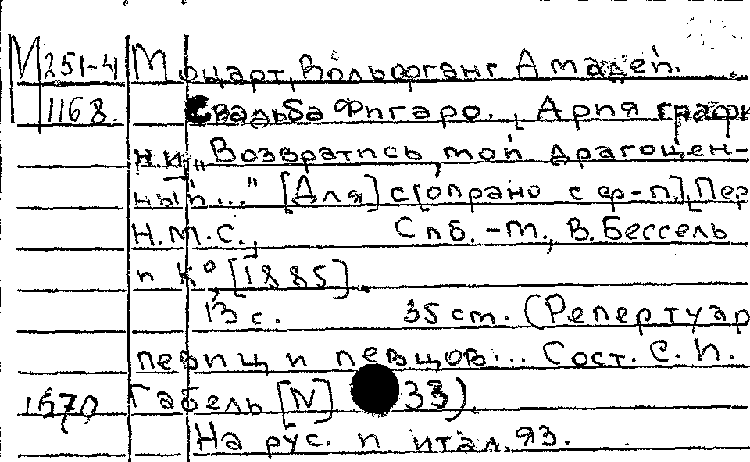 М 251-4 Моцарт, Вольфганг Амадей.
1168. Свадьба Фигаро. Ария графи-
н.и „Возвратись, мой драгоцен-
ный..." [Для] с[опрано с ф-п.], Пер
Н.М.С., Спб.-М., В. Бессель
и К° [1885].
13 с. 35 см. (Репертуар
певиц и певцов... Сост. С.И.
1570 Габель [N] 33).
На рус. и итал. яз.